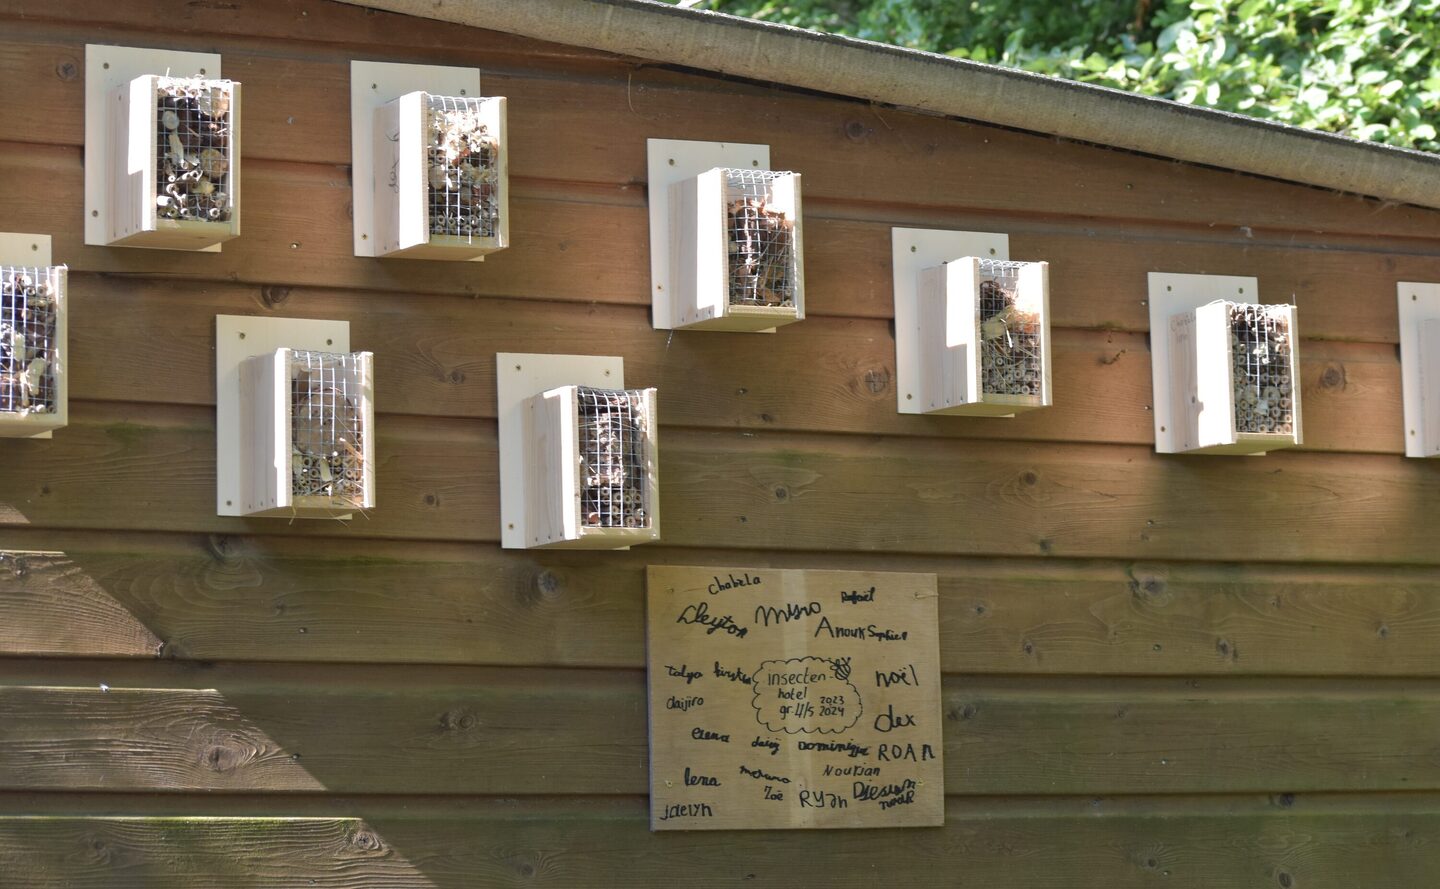 Chabela
Rafaël
Cleyton
Myro
Anouk
Sophie
talya
noël
insecten-
hotel
gr. 4/5
2023
2024
daijiro
dex
elena
Dominique
ROAN
lena
Nourian
Zoë
RYan
noah
jaelyn